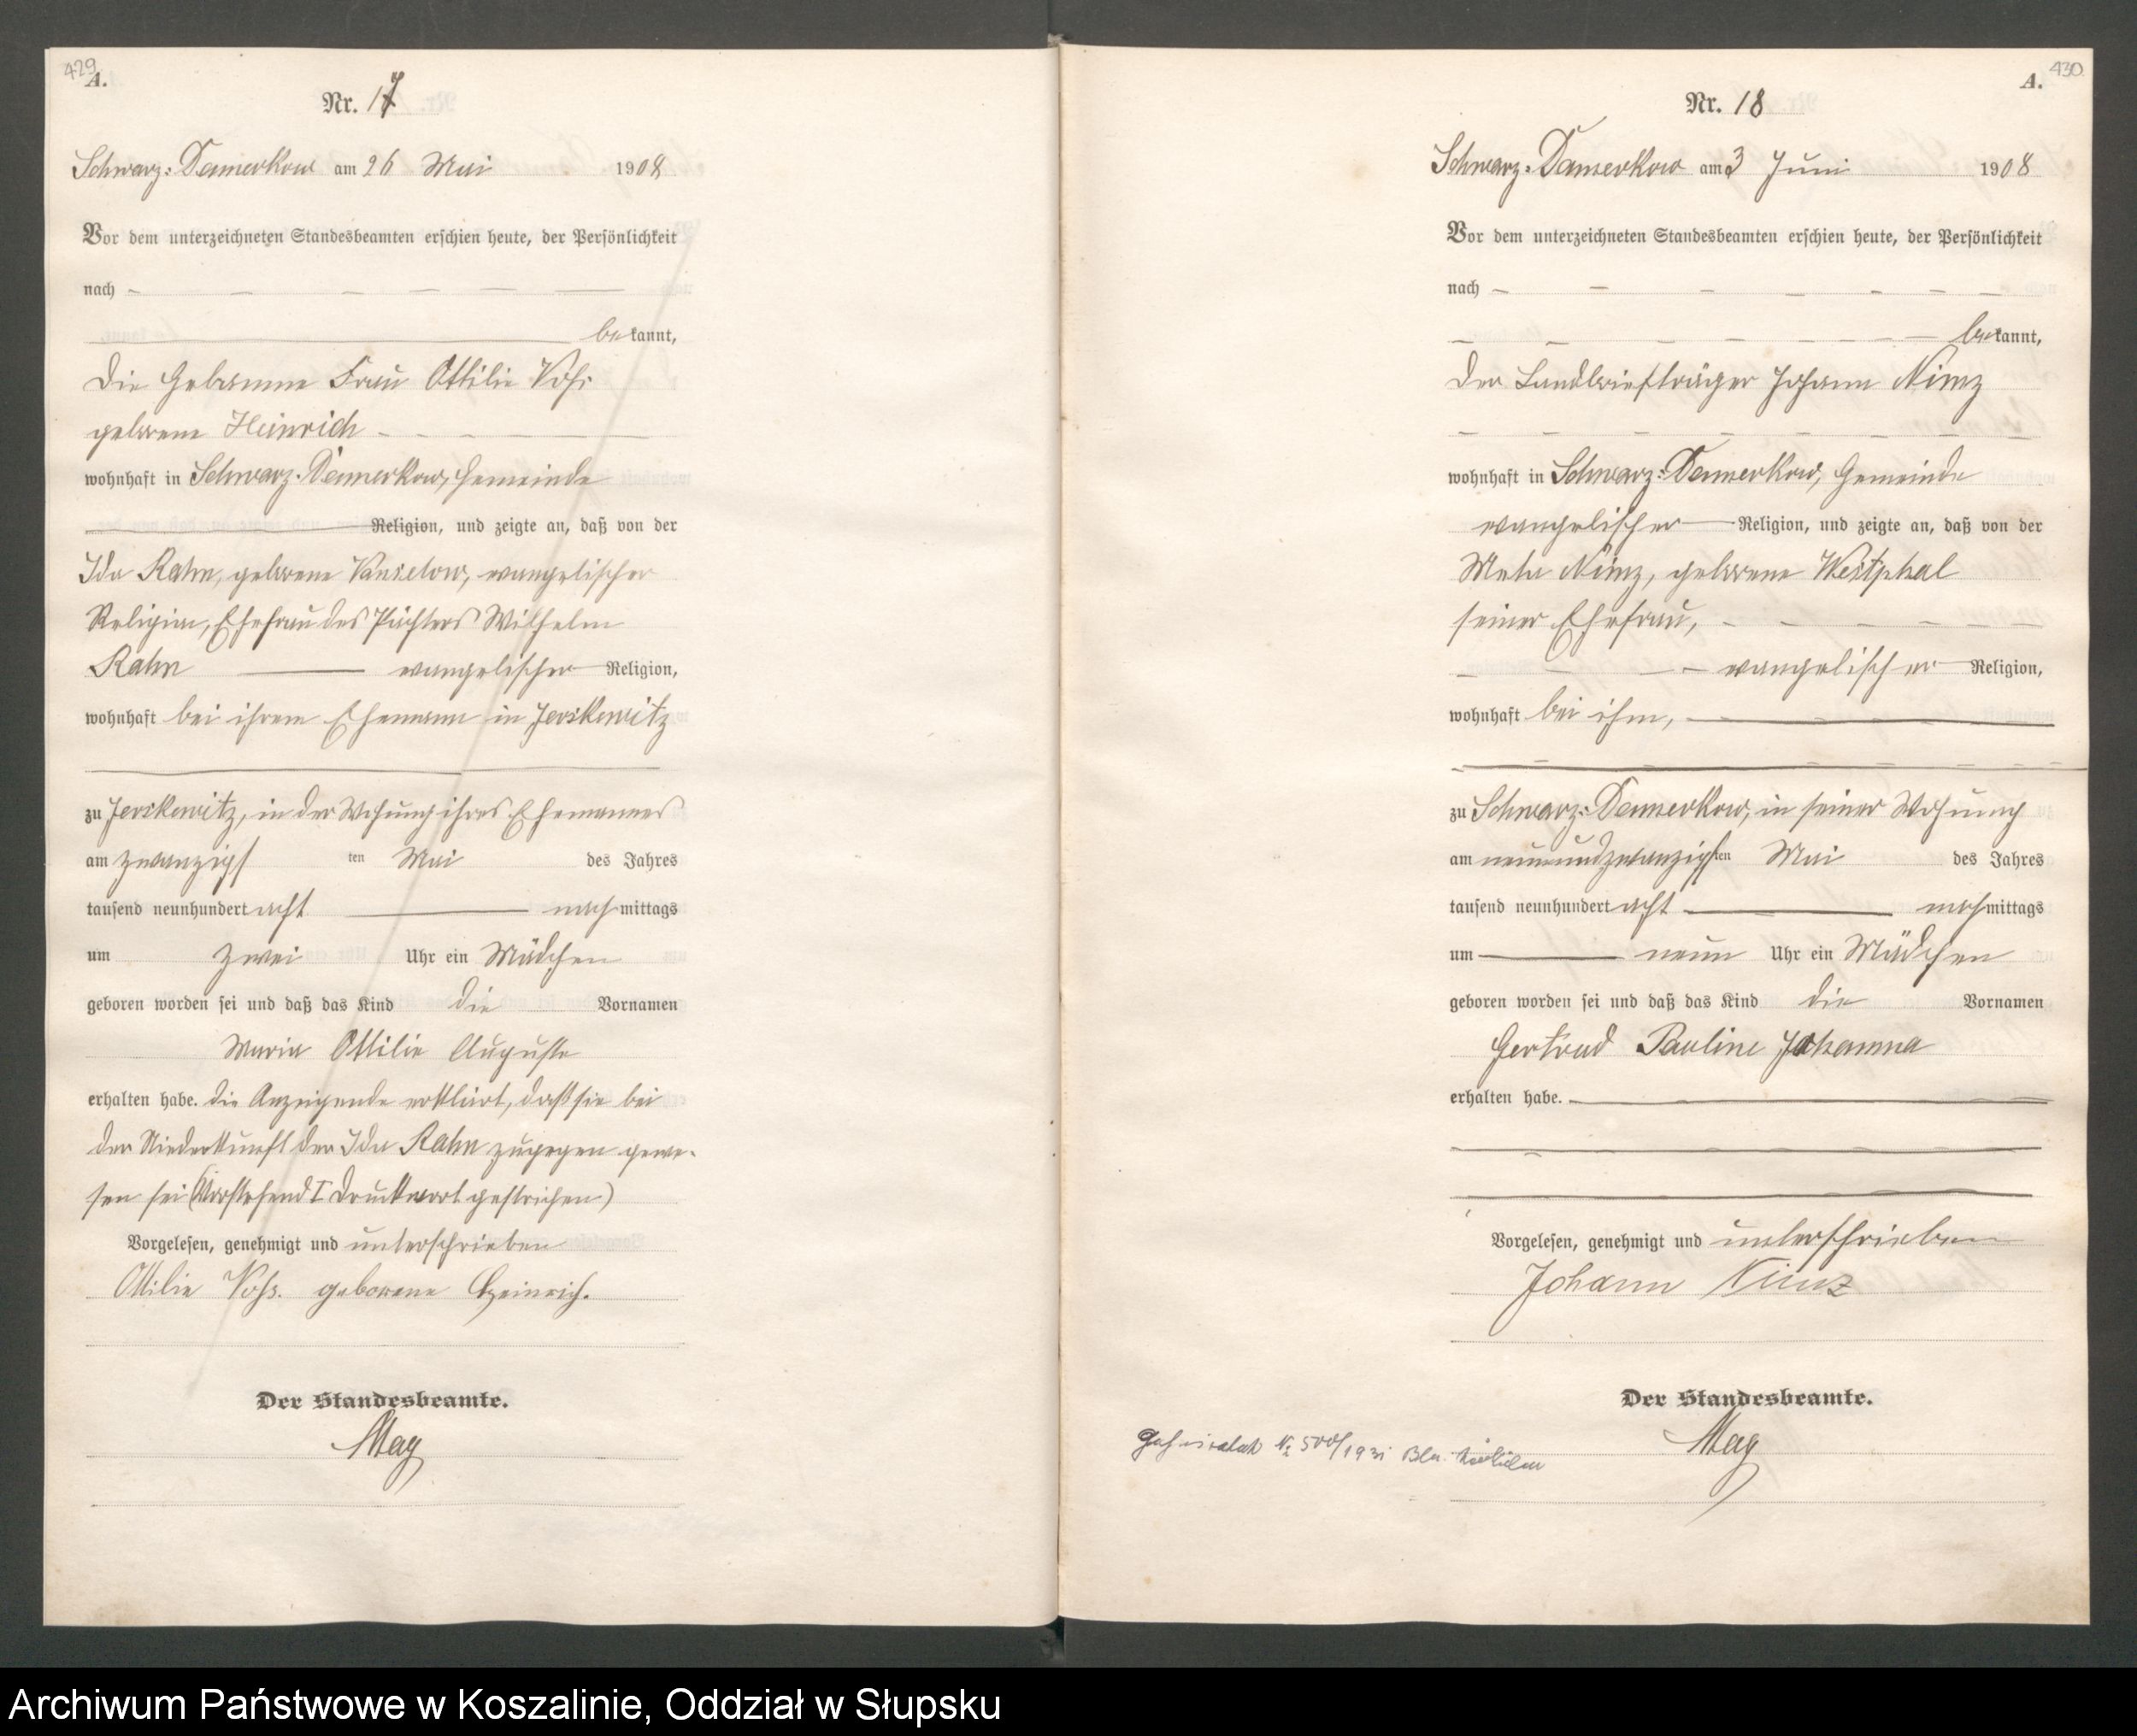 429
A.
Nr. 17
Schwarz-Damerkow am 26 Mai 1908
Vor dem unterzeichneten Standesbeamten erschien heute, der Persönlichkeit
nach
bekannt,
die Hebamme Frau Ottilie Voß
geborene Heinrich
wohnhaft in Schwarz-Damerkow, Gemeinde
Religion, und zeigte an, daß von der
Ida Rahn, geborene Vanselow, evangelischer
Religion, Ehefrau des Pächters Wilhelm
Rahn evangelischer Religion,
wohnhaft bei ihrem Ehemann in Jerskewitz
zu Jerskewitz, in der Wohnung ihres Ehemannes
am zwanzigsten Mai des Jahres
tausend neunhundert acht nachmittags
um zwei Uhr ein Mädchen
geboren worden sei und daß das Kind die Vornamen
Maria Ottilie Auguste
erhalten habe. die Anzeigende erklärt, daß sie bei
der Niederkunft der Ida Rahn zugegen gewe-
sen sei (Vorstehend 1 Druckwort gestrichen)
Vorgelesen, genehmigt und unterschrieben
Ottilie Voß. geborene Heinrich.
Der Standesbeamte.
May
430
A.
Nr. 18
Schwarz-Damerkow am 3 Juni 1908
Vor dem unterzeichneten Standesbeamten erschien heute, der Persönlichkeit
nach
bekannt,
der Landbriefträger Johann Nimz
wohnhaft in Schwarz-Damerkow, Gemeinde
evangelischer Religion, und zeigte an, daß von der
Meta Nimz, geborene Westphal
seiner Ehefrau,
evangelischer Religion,
wohnhaft bei ihm,
zu Schwarz-Damerkow, in seiner Wohnung
am neunundzwanzigsten Mai des Jahres
tausend neunhundert acht nachmittags
um neun Uhr ein Mädchen
geboren worden sei und daß das Kind die Vornamen
Gertrud Pauline Johanna
erhalten habe.
Vorgelesen, genehmigt und unterschrieben
Johann Nimz
Der Standesbeamte.
May
№ 500/1931 Bln.
Archiwum Państwowe w Koszalinie, Oddział w Słupsku